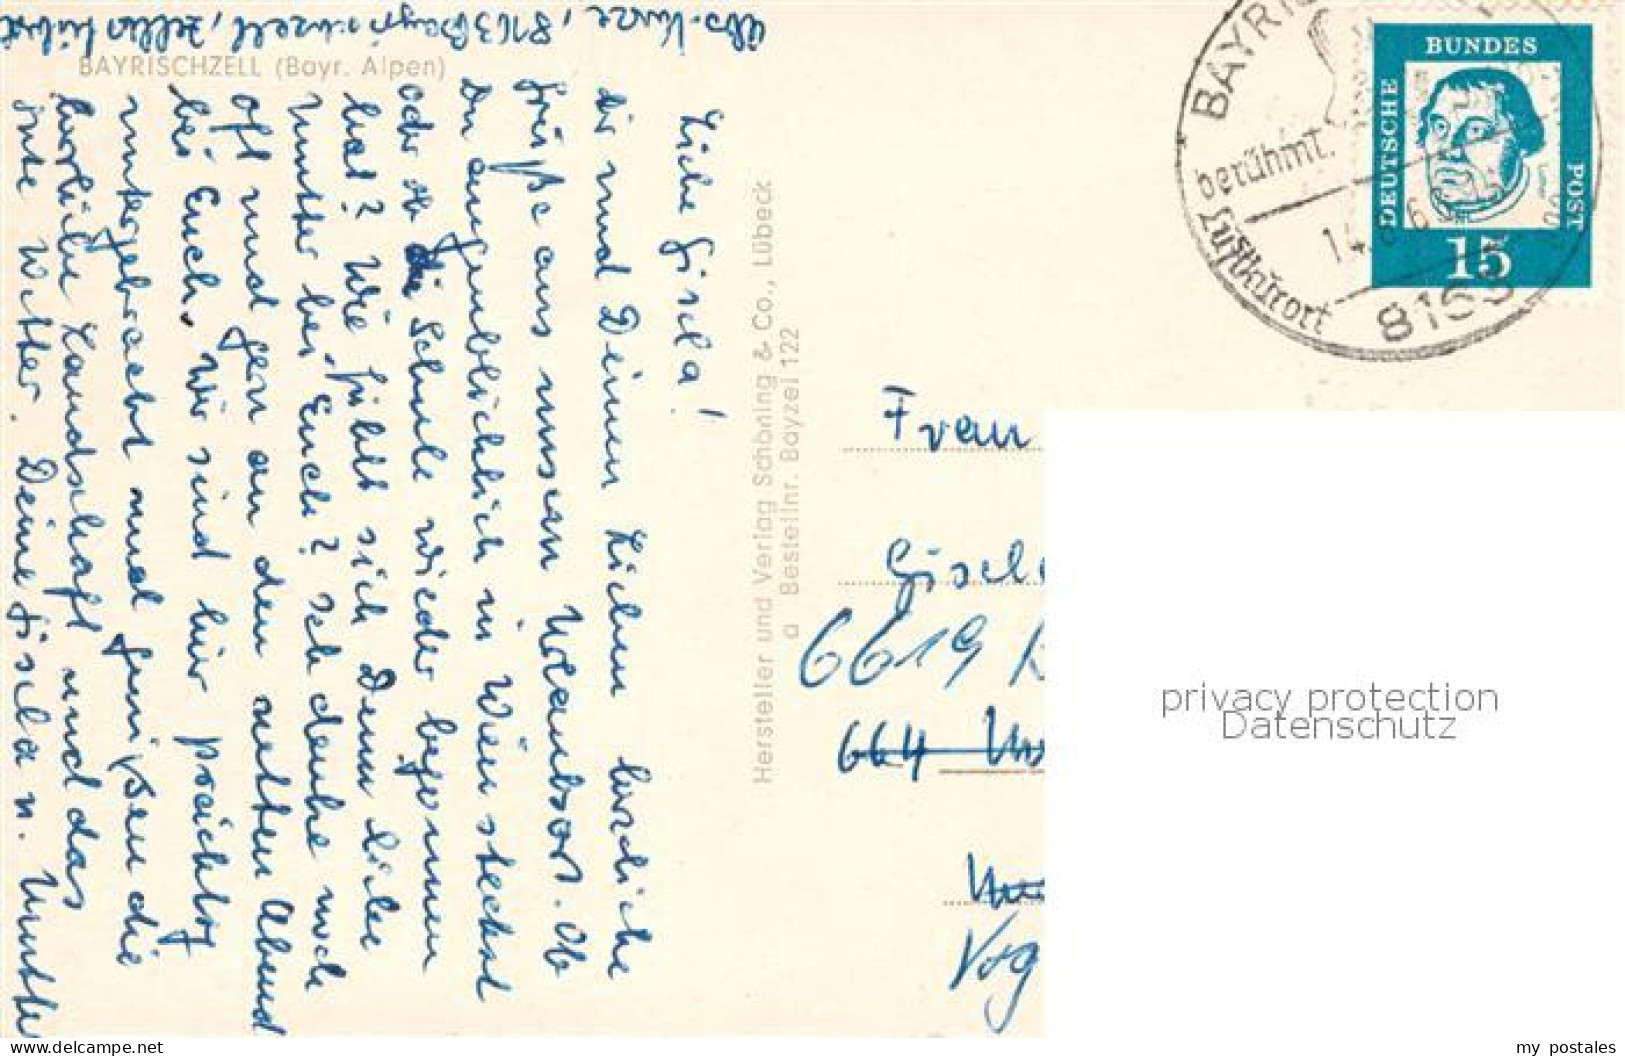 Abs. Kurze, 8163 Bayrischzell,
BAYRISCHZELL (Bayr. Alpen)
Liebe Gisela!
Dir und Deinen Lieben herzliche
Grüße aus unserem Urlaubsort. Ob
Du augenblicklich in Wien steckst
oder ob die Schule wieder begonnen
hat? Wie fühlt sich Deine liebe
Mutter bei Euch? Ich denke noch
oft und gern an den netten Abend
bei Euch. Wir sind hier prächtig
untergebracht und genießen die
herrliche Landschaft und das
gute Wetter. Deine Gisela u. Mutter
Hersteller und Verlag Schöning & Co., Lübeck
a Bestellnr. Bayzel 122
BAYRI
berühmt.
Luftkurort
14.
8163
BUNDES
DEUTSCHE
POST
15
Frau
Gisel
6619
664
privacy protection
Datenschutz
www.delcampe.net
my_postales